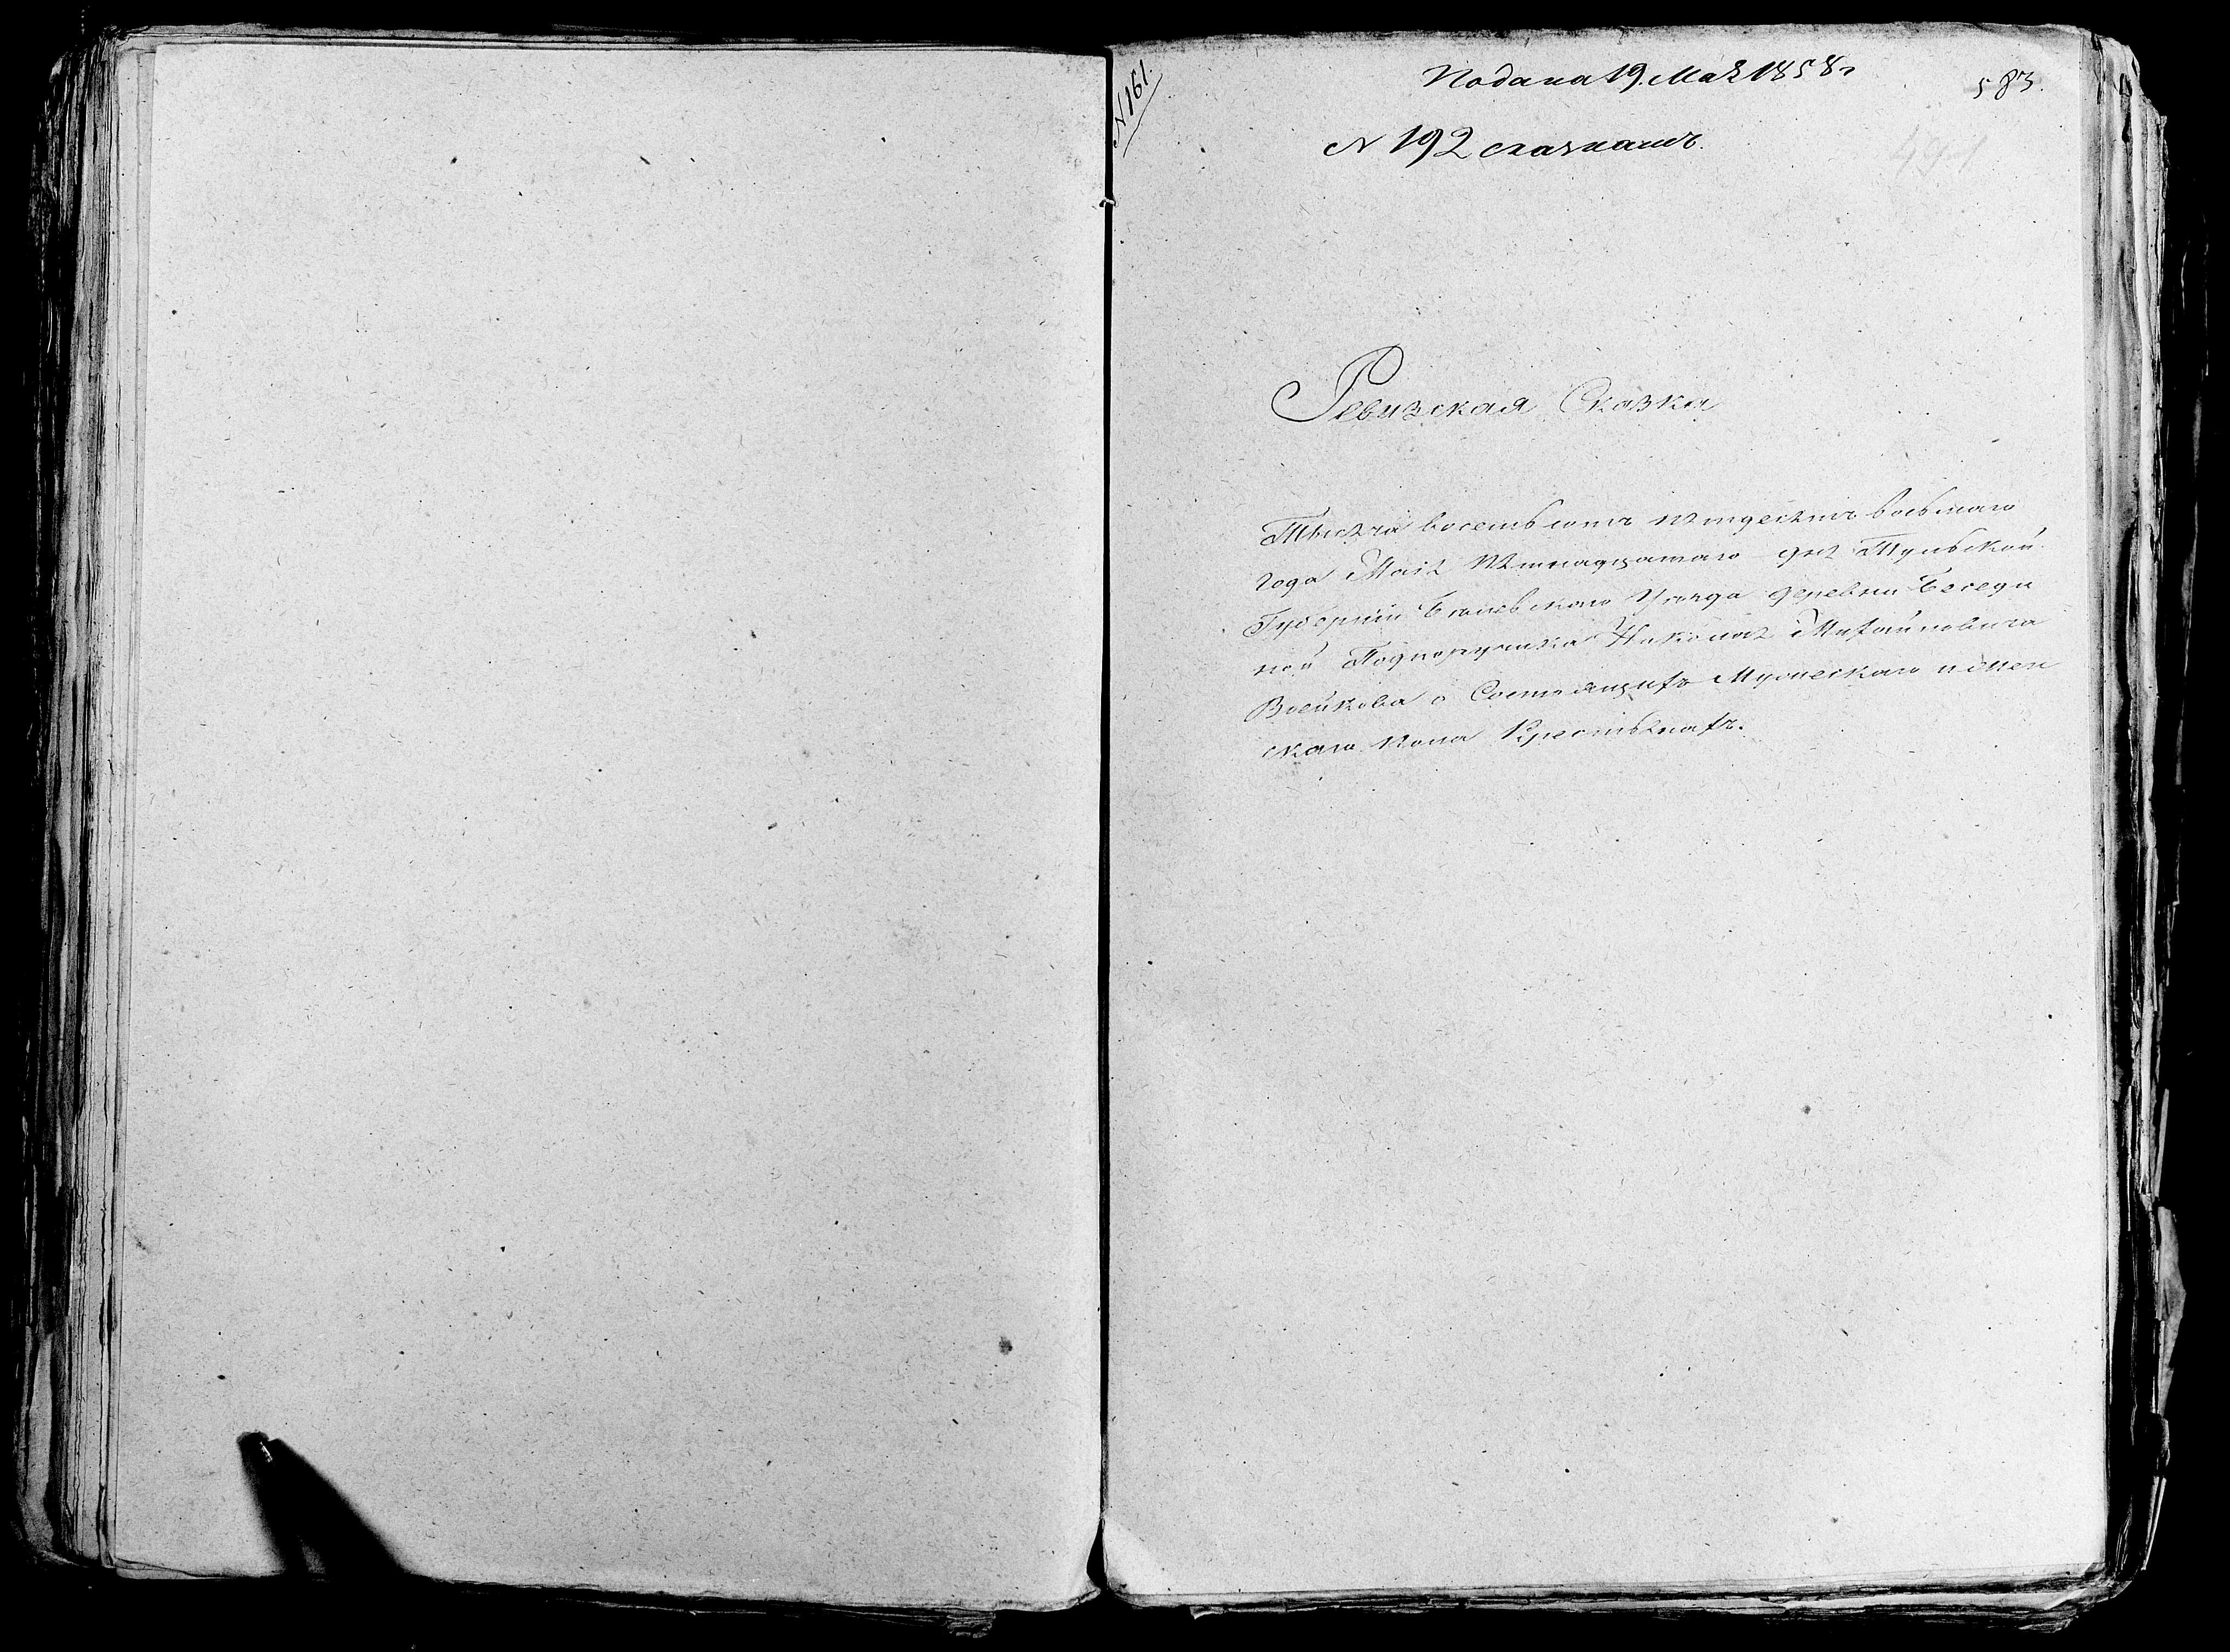 N 161.
Подана 19. Мая 1858 г
583.
N 192 сказкамъ.
491
Ревизская Сказка
Тысяча восемьсотъ пятдесятъ восьмаго
года Маія Пятнадцатаго дня Тульской
Губерніи Бѣлевскаго Уѣзда деревни Беседи
ной Подпорутчика Николая Михайловича
Воейкова о Состоящихъ Мужескаго и Жен
скаго пола Крестьянахъ.